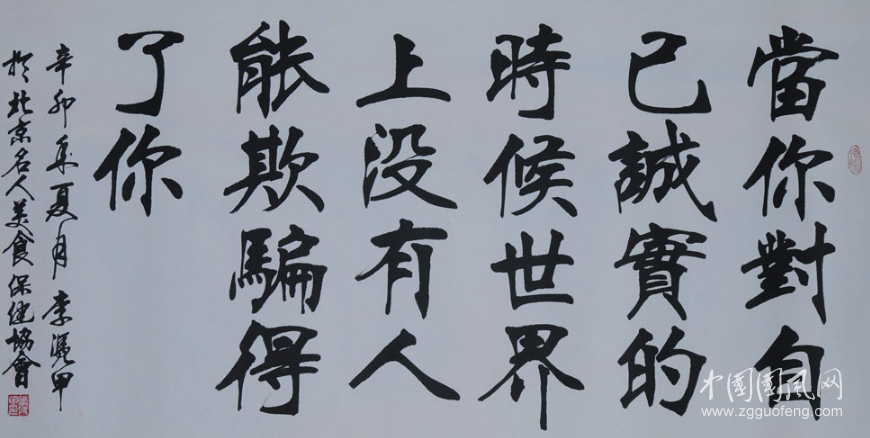 當你對自
己誠實的
時候世界
上没有人
能欺騙得
了你
辛卯年夏月李甲
於北京名人美食保健協會
中國國風网
www.zgguofeng.com